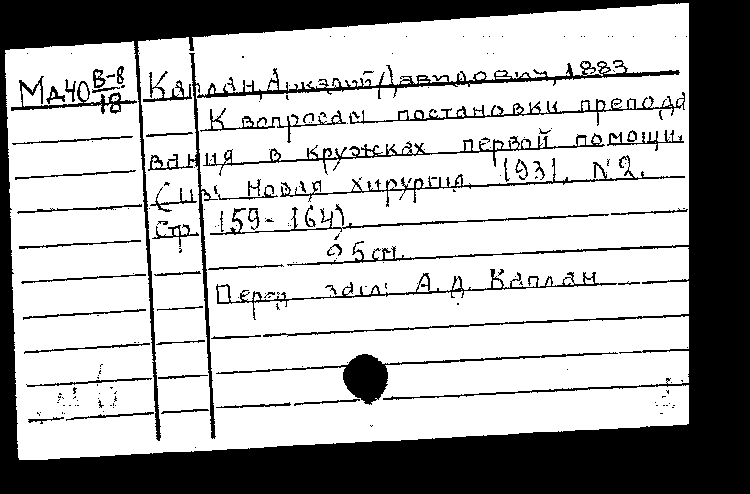 Мд40 В-8/18 Каплан, Аркадий Давидович, 1883
К вопросам постановки препода
вания в кружках первой помощи.
(Из: Новая хирургия. 1931, N2.
Стр. 159-164).
25 см.
Перед загл: А.Д. Каплан